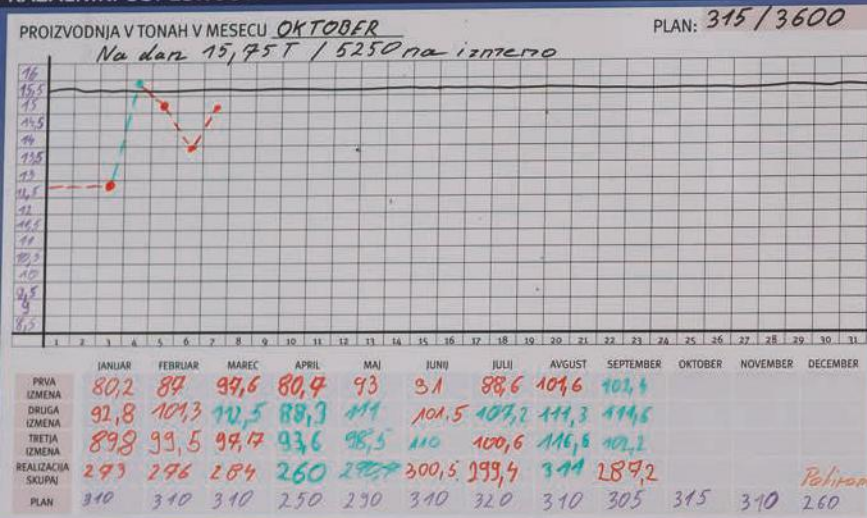 PROIZVODNJA V TONAH V MESECU OKTOBER PLAN: 315/3600
Na dan 15,75T / 5250 na izmeno
16
15,5
15
14,5
14
13,5
13
12,5
12
11,5
11
10,5
10
9,5
9
8,5
1 2 3 4 5 6 7 8 9 10 11 12 13 14 15 16 17 18 19 20 21 22 23 24 25 26 27 28 29 30 31
JANUAR FEBRUAR MAREC APRIL MAJ JUNIJ JULIJ AVGUST SEPTEMBER OKTOBER NOVEMBER DECEMBER
PRVA IZMENA 80,2 87 97,6 80,4 93 91 88,6 101,6
DRUGA IZMENA 92,8 101,3 88,3 111 101,5 107,2 111,3 111,6
TRETJA IZMENA 89,8 99,5 97,17 93,6 98,5 110 100,6 116,6 102,2
REALIZACIJA SKUPAJ 273 276 284 260 300,5 299,4 311 287,2
PLAN 310 310 310 250 290 310 320 310 305 315 310 260